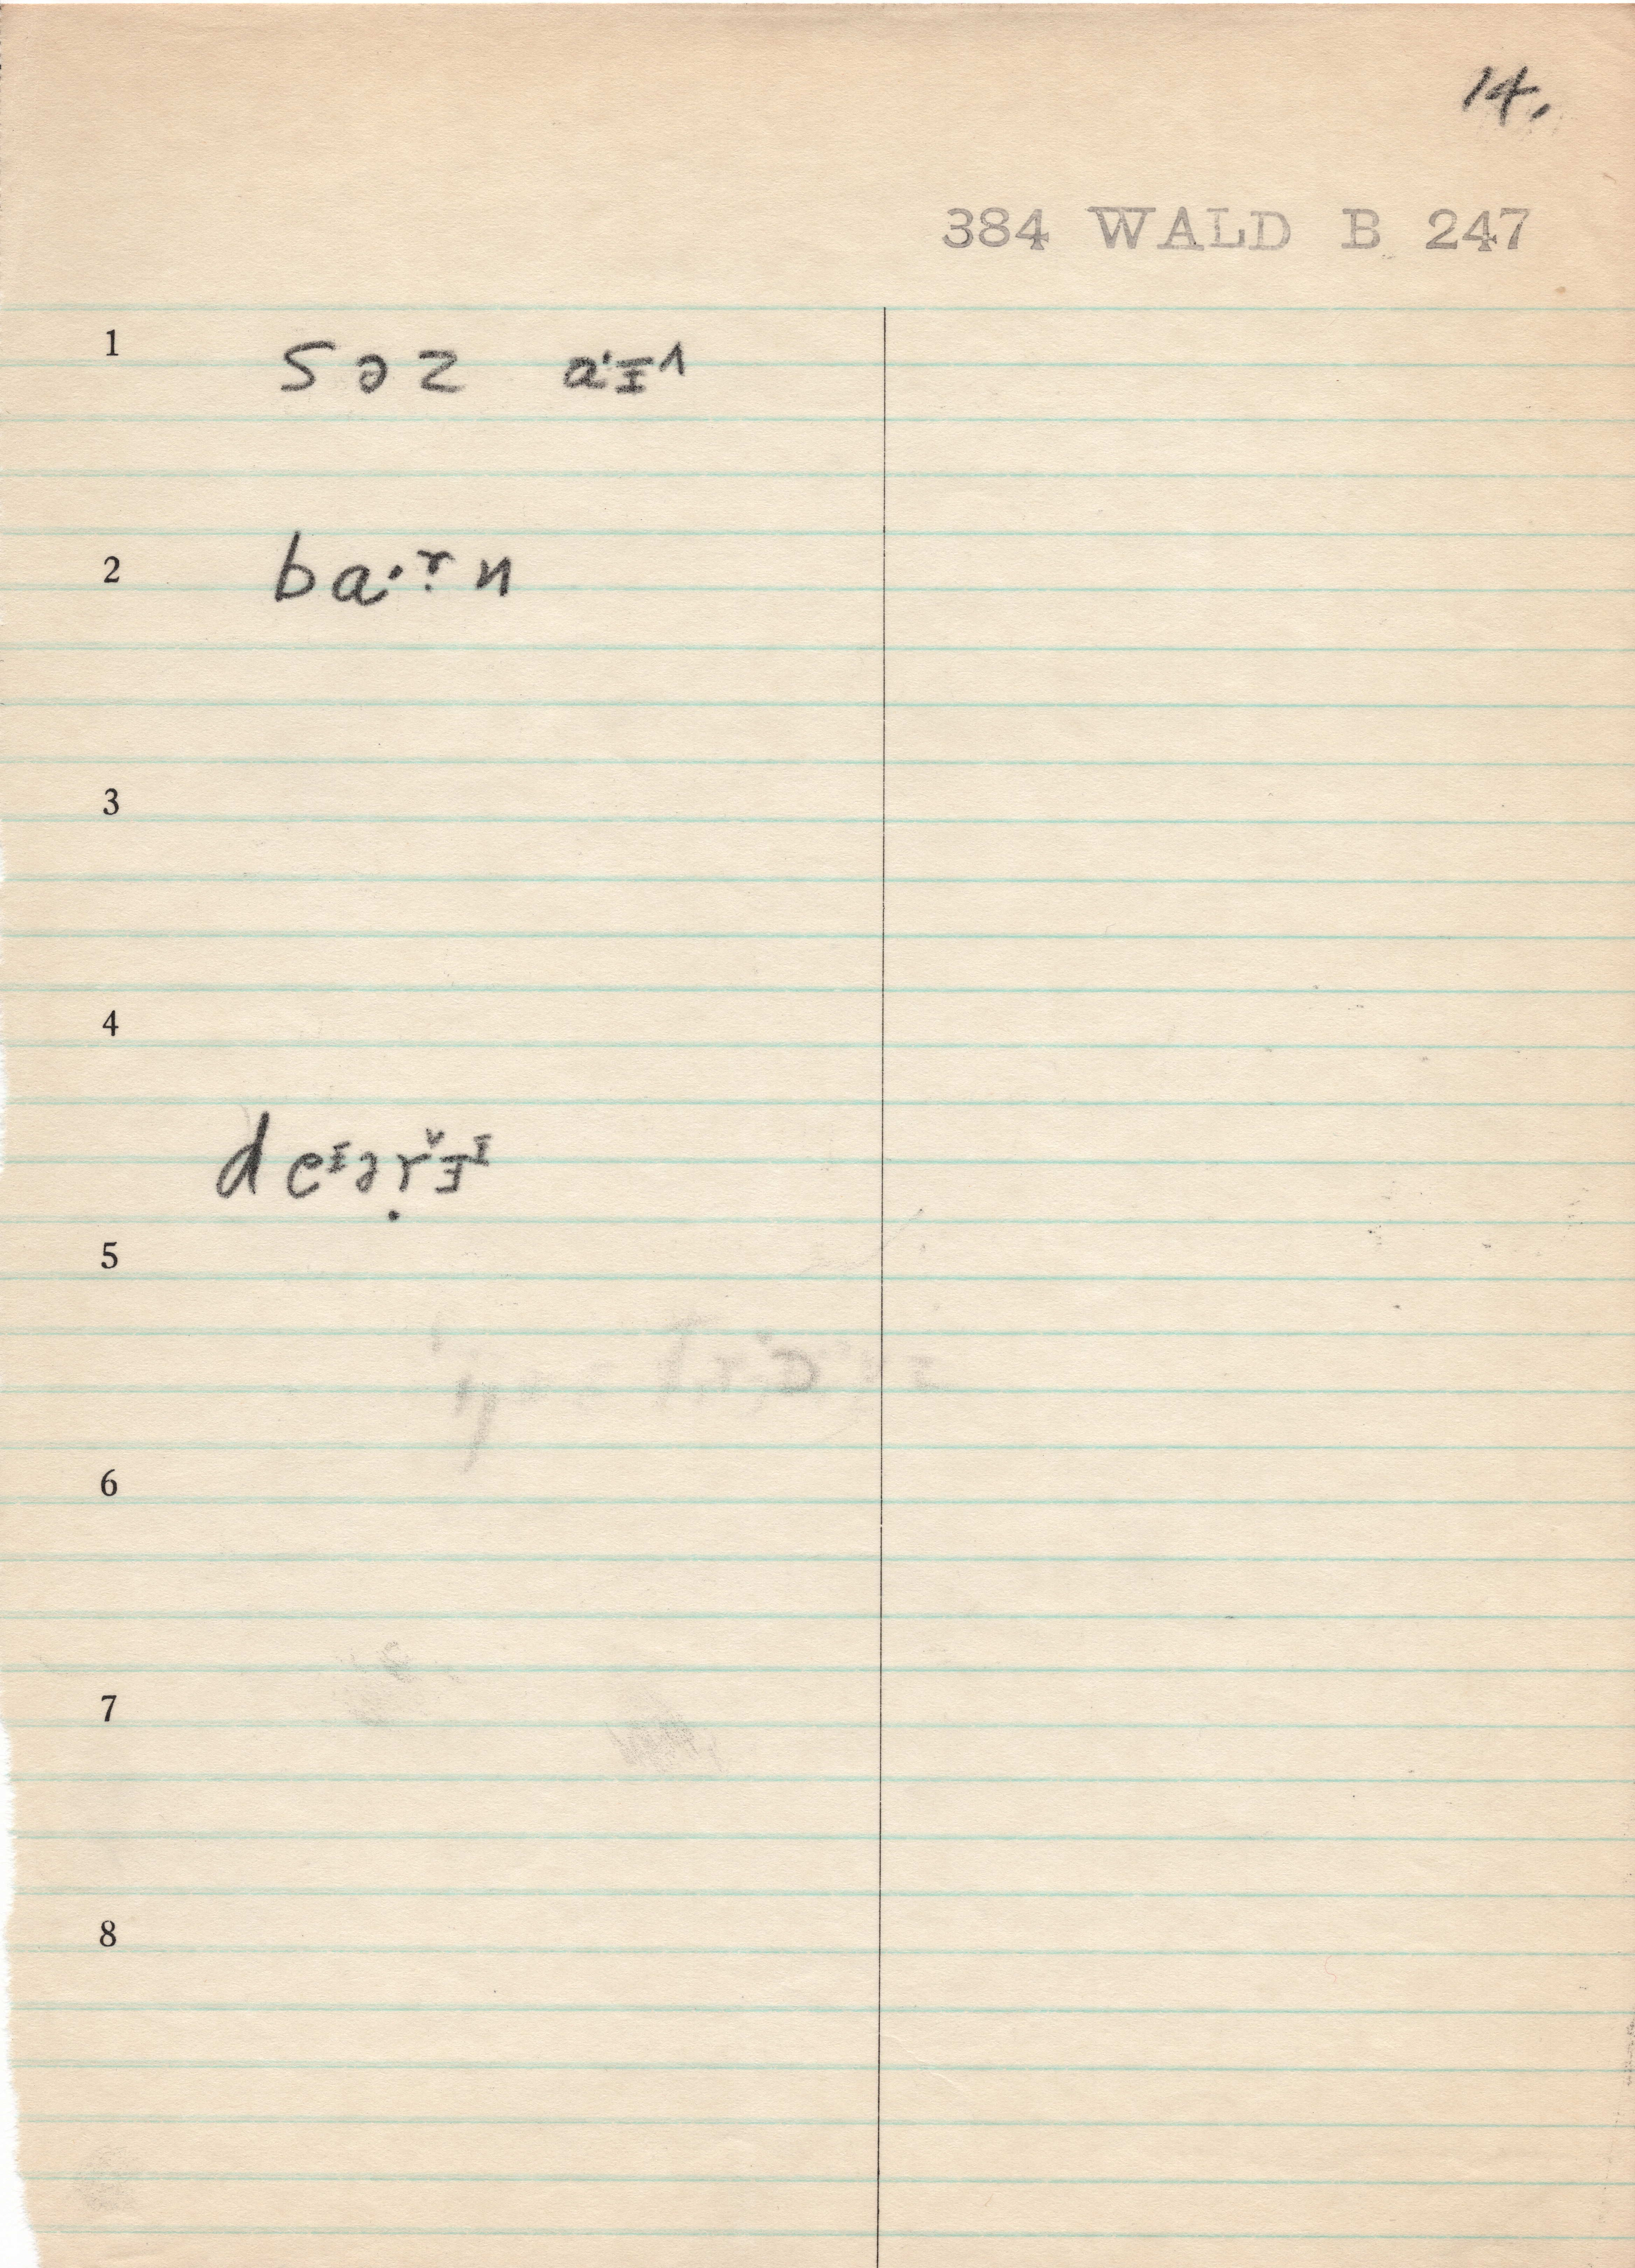 14.
384 WALD B 247
1 s ə z aˑɪ^
2 b aˑṛ n
3
4
d eᶦəṛ̌ɪᶦ
5
6
7
8